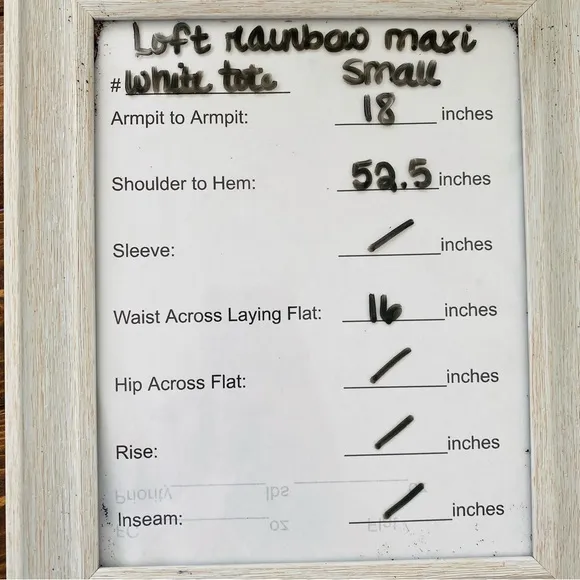 Loft rainbow maxi
# White tote Small
Armpit to Armpit: 18 inches
Shoulder to Hem: 52.5 inches
Sleeve: / inches
Waist Across Laying Flat: 16 inches
Hip Across Flat: / inches
Rise: / inches
Priority lbs
Inseam: / inches
FC oz Flat